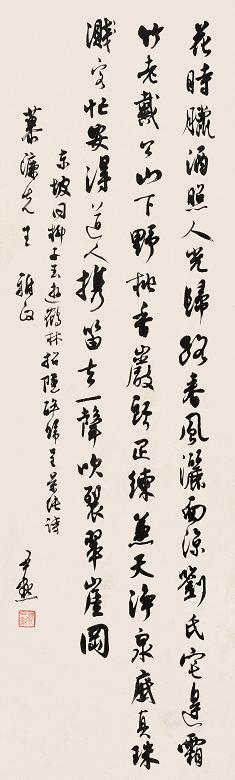 花時臘酒照人光歸路春風灑面涼劉氏宅邊霜
竹老戴公山下野桃香巖頭匹練兼天淨泉底真珠
濺客忙安得道人携笛去一聲吹裂翠崖岡
東坡同柳子玉遊鶴林招隱醉歸呈景純詩 尹默
慕濂先生雅正